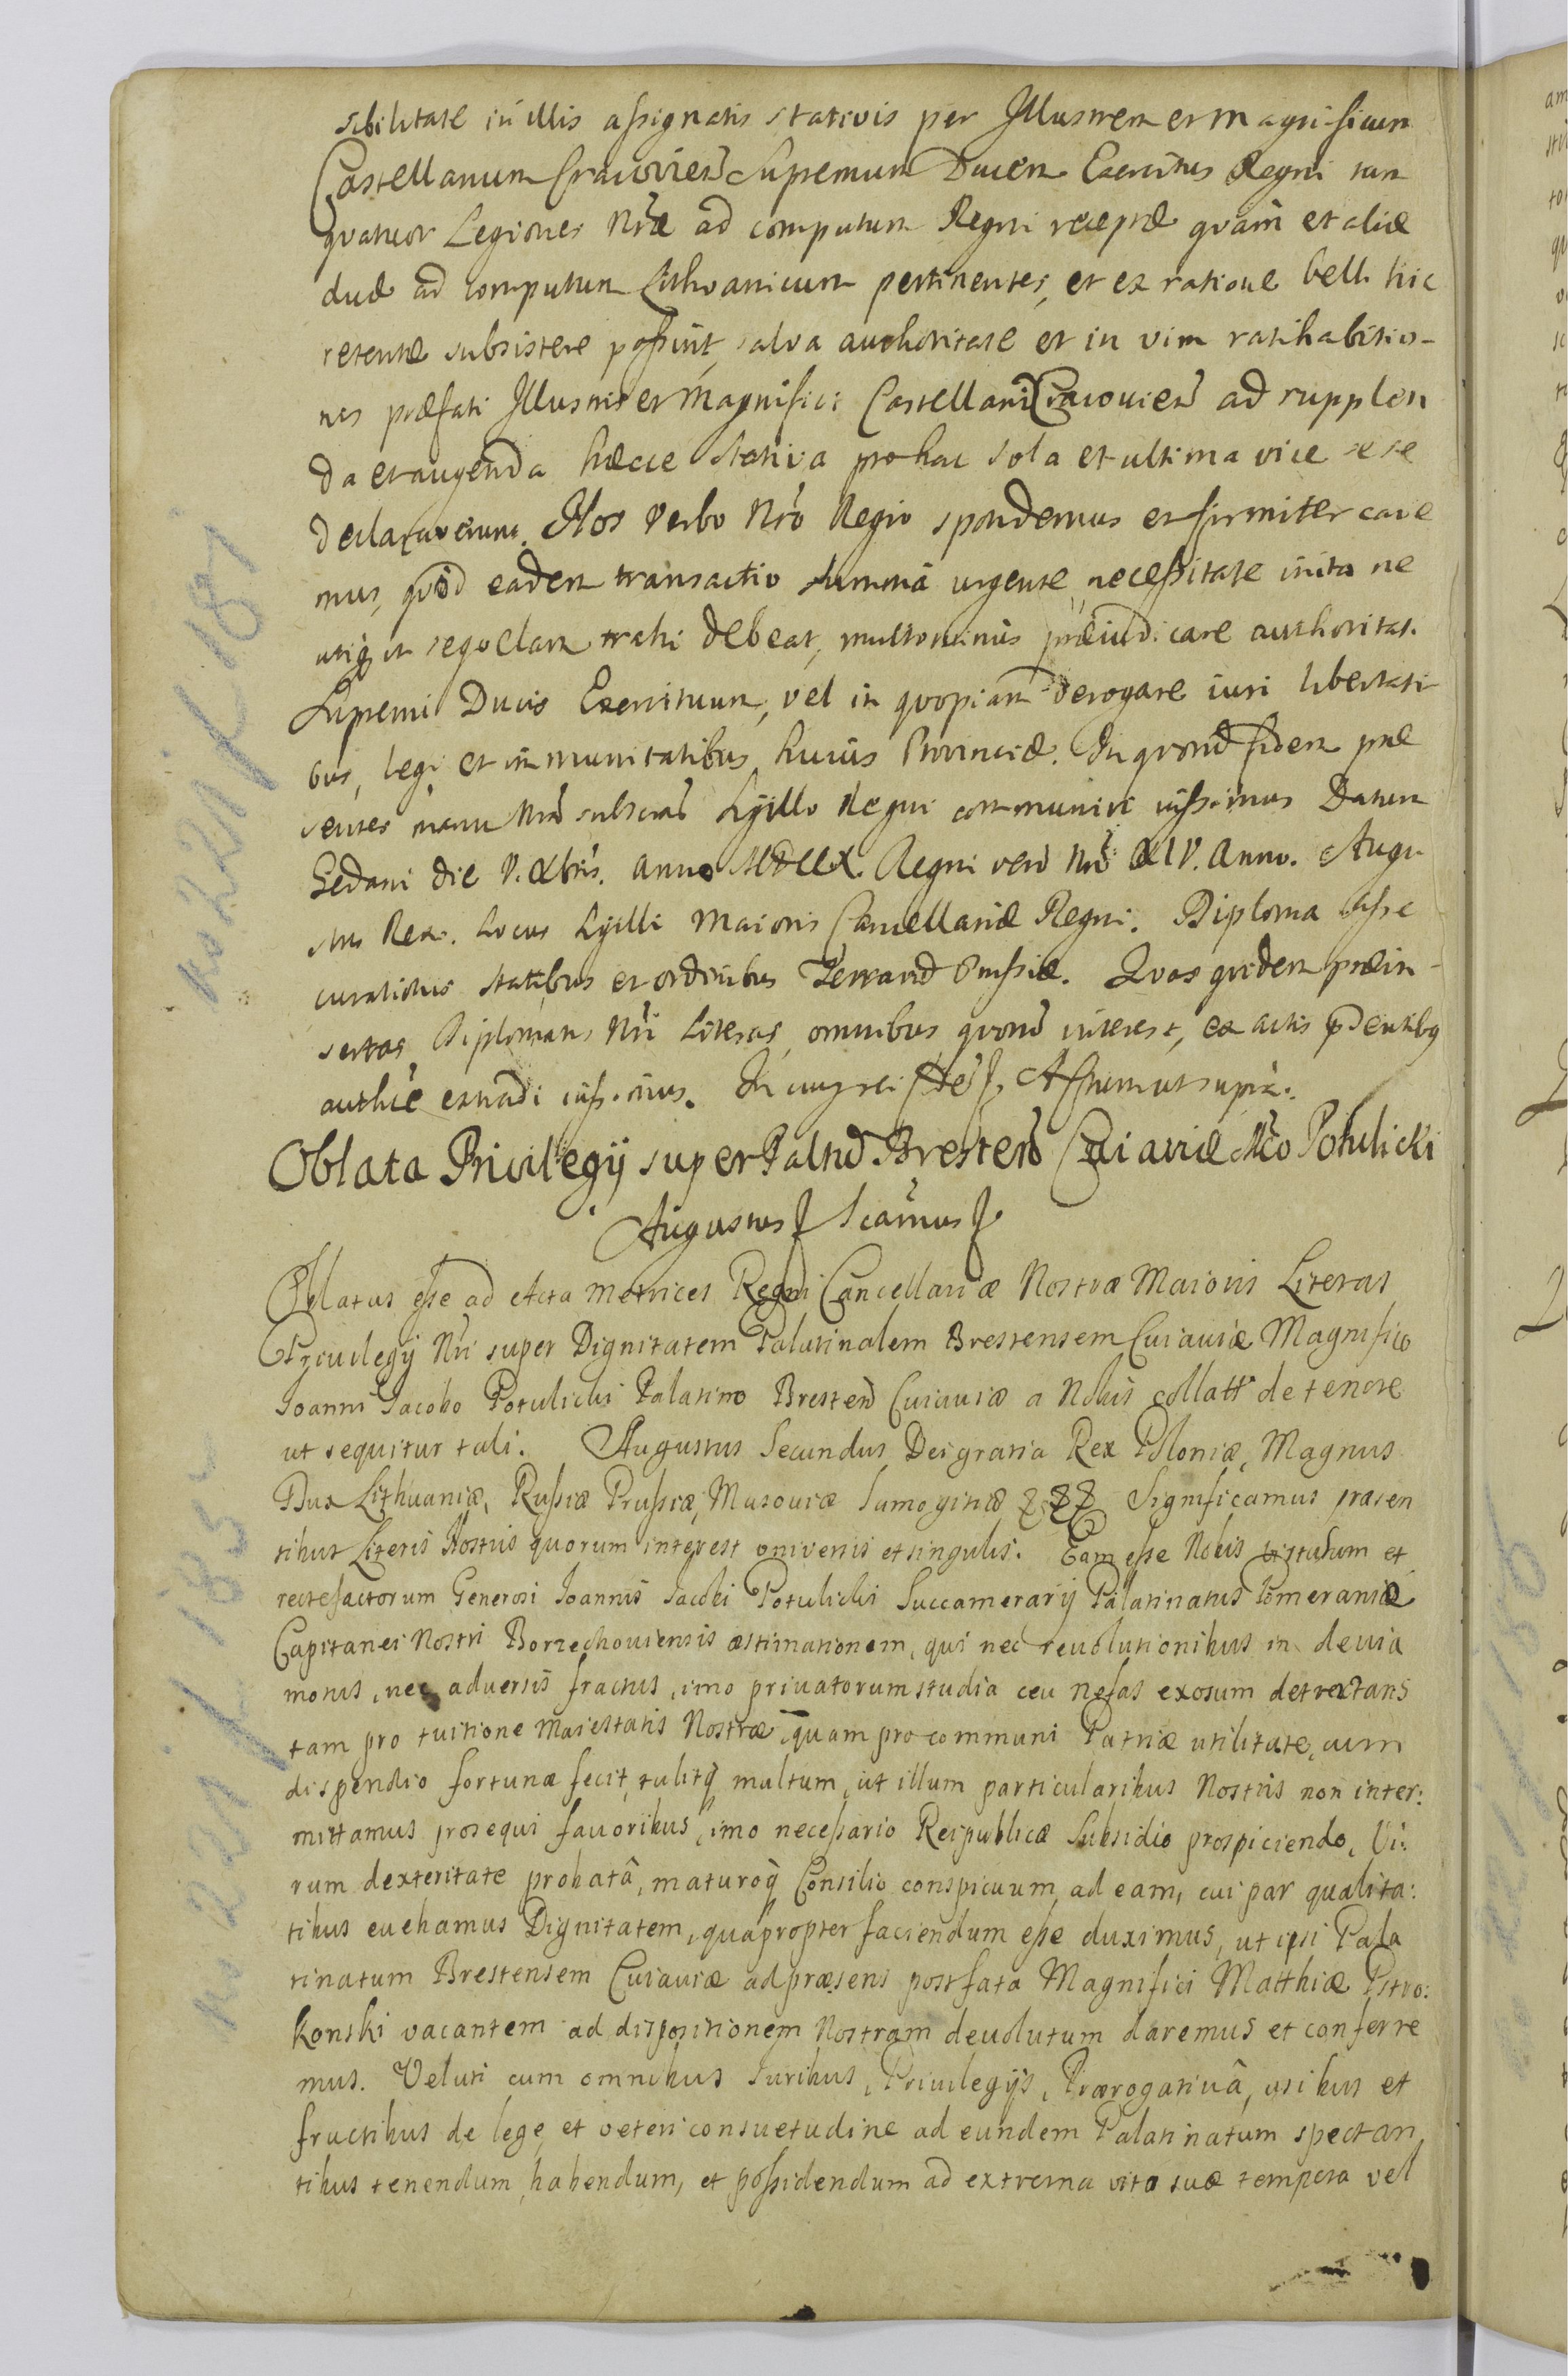 sibilitate in illis assignatis stativis per Illustrem et Magnificum
Castellanum Cracovien Supremum Ducem Exercitus Regni tam
qvatuor Legiones Nrae ad computum Regni receptae qvam et aliae
duae ad computum Lithvanicum pertinentes, et ex ratione belli hic
retentae subsistere possint, salva authoritate et in vim ratihabitio-
nis praefati Illustris et Magnifici Castellani Cracovien ad supplen
da et augenda haecce Stativa pro hac sola et ultima vice sese
declaraverunt. Nos Verbo Nro Regio spondemus et firmiter cave
mus, qvod eadem transactio summa urgente necessitate inita ne
utiq in seqvelam trahi debeat, multominus praeiudicare authoritati
Supremi Ducis Exercituum, vel in qvopiam derogare iuri libertati
bus, legi et immunitatibus huius Provinciae. In qvorum fidem prae
sentes manu Nra subscrias Sigillo Regni communiri iussimus Datum
Gedani die V. Xbris. Anno MDCCX. Regni vero Nri XIV. Anno. Augu
stus Rex. Locus Sigilli Maioris Cancellariae Regni. Diploma Asse
curationis Statibus et ordinibus Terrarum Prussiae. Qvas qvidem praein-
sertas Diplomatis Nri Literas, omnibus qvorum interest, ex actis pdentibq
authce extradi iussimus. In cuiq rei fidem Actum ut supra.
Oblata Privilegij super Paltum Bresten Cuiaviae Mco Potulicki
Augustus Scamus
Oblatas esse ad Acta Metrices Regni Cancellariae Nostrae Maioris Literas
Privilegij Nri super Dignitatem Palatinalem Brestensem Cuiaviae Magnifico
Joanni Jacobo Potulicki Palatino Bresten Cuiaviae a Nobis collatt de tenore
ut sequitur tali. Augustus Secundus Dei gratia Rex Poloniae, Magnus
Dux Lithuaniae, Russiae Prussiae, Masoviae Samogitiae Significamus praesen
tibus Literis Nostris quorum interest universis et singulis. Eam esse Nobis virtutum et
rectefactorum Generosi Joannis Jacobi Potulicki Succamerarij Palatinatus Pomeraniae
Capitanei Nostri Borzechoviensis aestimationem, qui nec revolutionibus in devia
motus, nec adversis fractus, imo privatorum studia ceu nefas exosum detrectans
tam pro tuitione Maiestatis Nostrae, quam pro communi Patriae utilitate, cum
dispendio fortunae fecit, tulitq multum, ut illum particularibus Nostris non inter:
mittamus prosequi favoribus, imo necessario Reipublicae Subsidio prospiciendo, Vi:
rum dexteritate probatâ, maturoq Consilio conspicuum, ad eam, cui par qualita:
tibus evehamus Dignitatem, quapropter faciendum esse duximus, ut ipsi Pala
tinatum Brestensem Cuiaviae ad praesens post fata Magnifici Matthiae Pstro:
konski vacantem ad dispositionem Nostram devolutum daremus et conferre
mus. Veluti cum omnibus Juribus, Privilegijs, Praerogativâ, usibus et
fructibus de lege et veteri consuetudine ad eundem Palatinatum spectan
tibus tenendum, habendum, et possidendum ad extrema vitae suae tempora vel